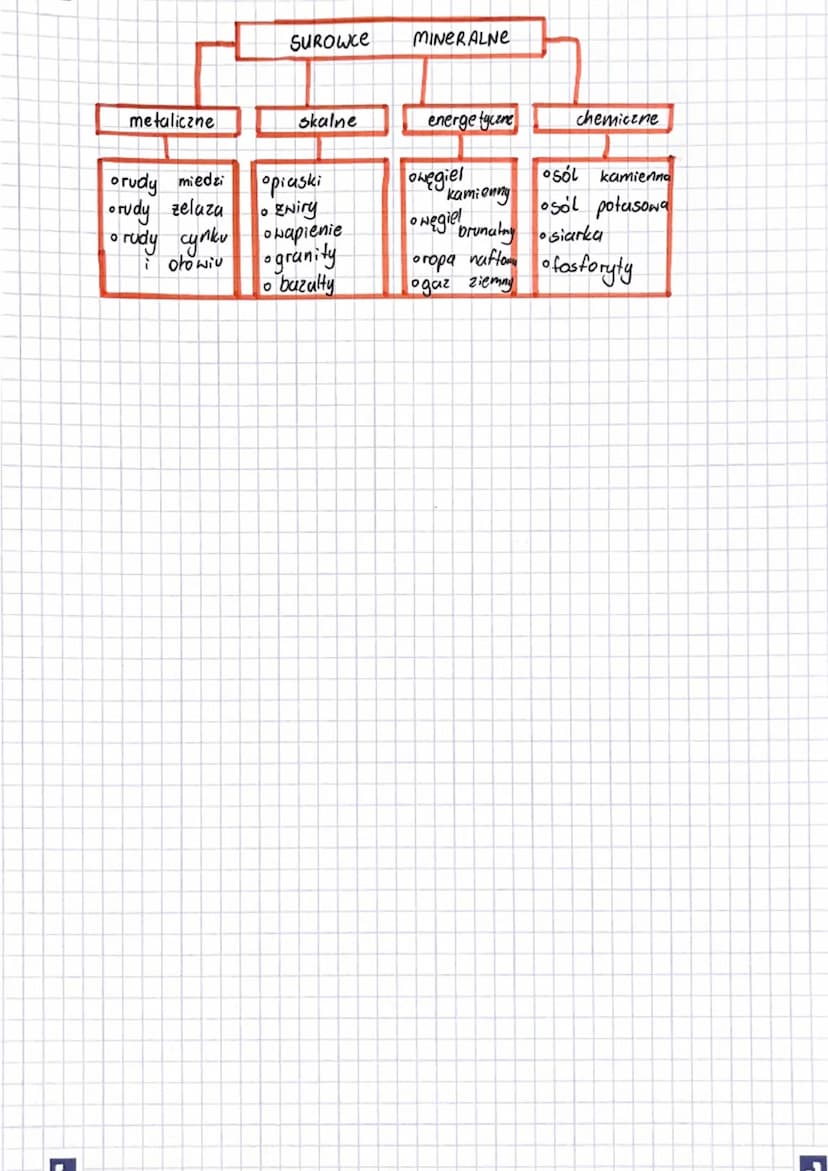 SUROWCE MINERALNE
metaliczne
skalne
energetyczne
chemiczne
rudy miedzi
rudy żelaza
rudy cynku
i ołowiu
piaski
żwiry
wapienie
granity
bazalty
węgiel
kamienny
węgiel
brunatny
ropa naftowa
gaz ziemny
sól kamienna
sól potasowa
siarka
fosforyty